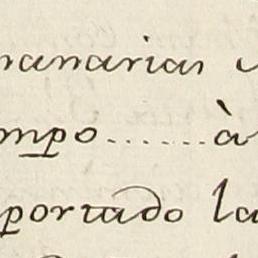 nanarias
mpo.......à
portado la